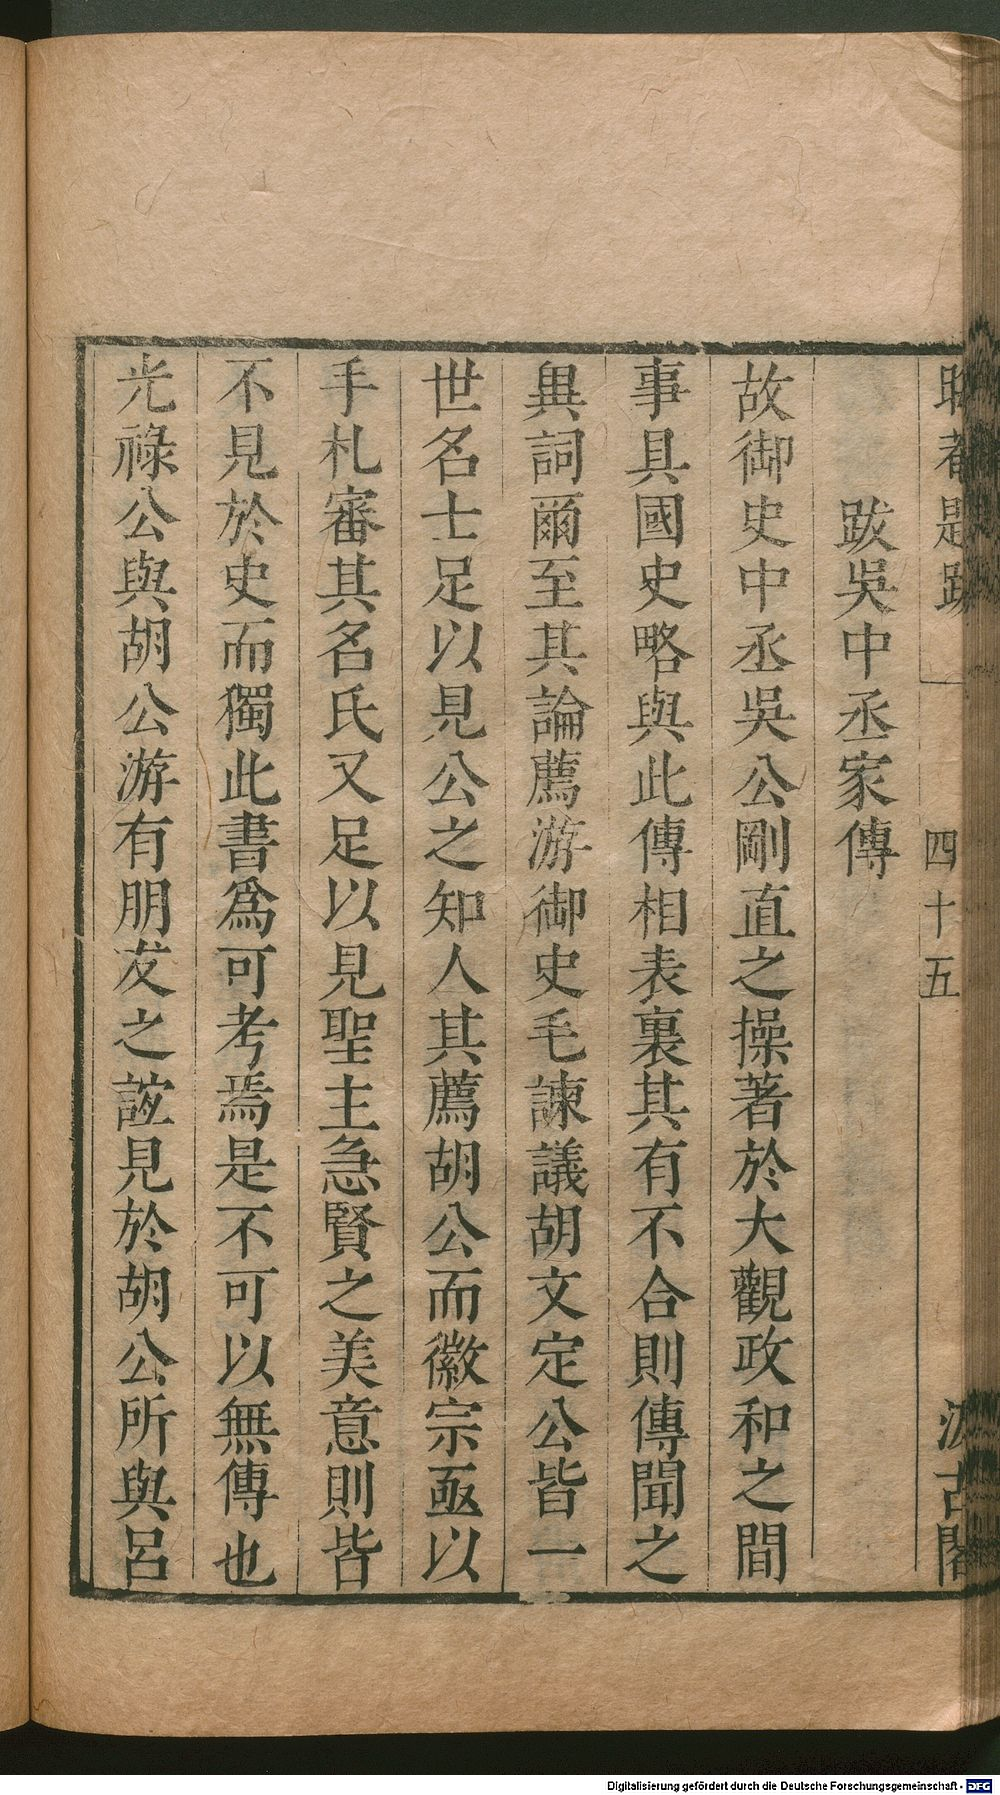 晦菴題跋
四十五
汲古閣
跋吳中丞家傳
故御史中丞吳公剛直之操著於大觀政和之間
事具國史略與此傳相表裏其有不合則傳聞之
異詞爾至其論薦游御史毛諫議胡文定公皆一
世名士足以見公之知人其薦胡公而徽宗亟以
手札審其名氏又足以見聖主急賢之美意則皆
不見於史而獨此書爲可考焉是不可以無傳也
光祿公與胡公游有朋友之誼見於胡公所與呂
Digitalisierung gefördert durch die Deutsche Forschungsgemeinschaft - DFG